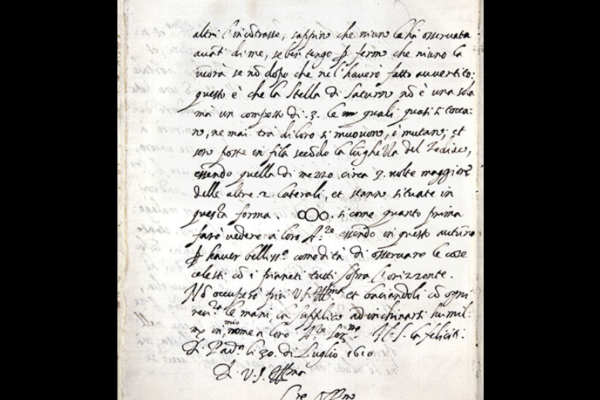 altri s'incõtrasse, sappino che niuno la ha osservata
avãti di me, se ben tengo p fermo che niuno la
vedrà se nõ dopo che ne l'haverò fatto avvertito;
questo è che la Stella di Saturno nõ è una sola
mà un composto di .3. le quali quasi si tocca-
no, ne mai trà di loro si muovono, ò mutano; et
son poste in fila secõdo la lũghezza del Zodiaco,
essendo quella di mezzo circa 3. volte maggiore
delle altre 2 laterali, et stanno situate in
questa forma . oOo. si come quanto prima
farò vedere a loro A.ze essendo in questo autũno
p haver belliss.a comodità di osservare le cose
celesti cõ i pianeti tutti sopra l'orizonte.
Nõ occuperò più V. S. Ill.ma et baciandoli cõ ogni
rev.za le mani, la supplico ad inchinarsi humil
m.te in mio nome à loro A.ze Ser.me Il S. la feliciti.
Di Pad.a li 30. di Luglio 1610
Di V. S. Ill.ma